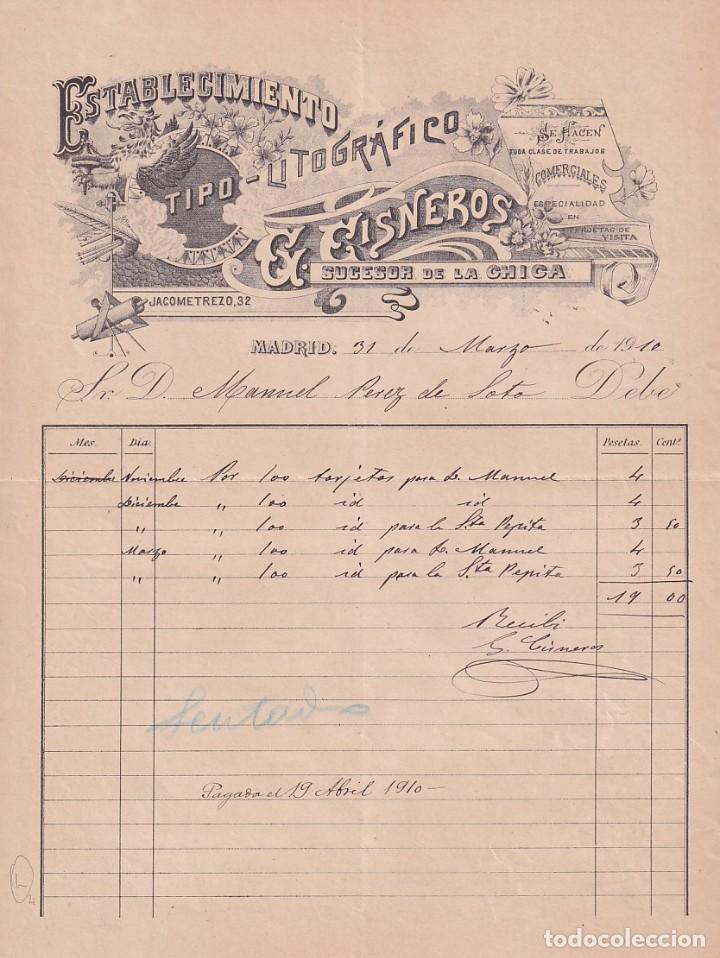 ESTABLECIMIENTO
TIPO-LITOGRÁFICO
G. CISNEROS
SUCESOR DE LA CHICA
JACOMETREZO, 32
SE HACEN
TODA CLASE DE TRABAJOS
COMERCIALES
ESPECIALIDAD
EN
TARJETAS DE
VISITA
MADRID. 31 de Marzo de 1910
Sr. D. Manuel Perez de Soto Debe
Mes. Día. Pesetas. Centˢ
Diciembre Noviembre Por 100 tarjetas para D. Manuel 4
Diciembre " 100 id id 4
" " 100 id para la Sta Pepita 3 50
Marzo " 100 id para D. Manuel 4
" " 100 id para la Sta Pepita 3 50
19 00
Recibi
G. Cisneros
Sentado
Pagada el 19 Abril 1910-
todocoleccion
todocoleccion.net